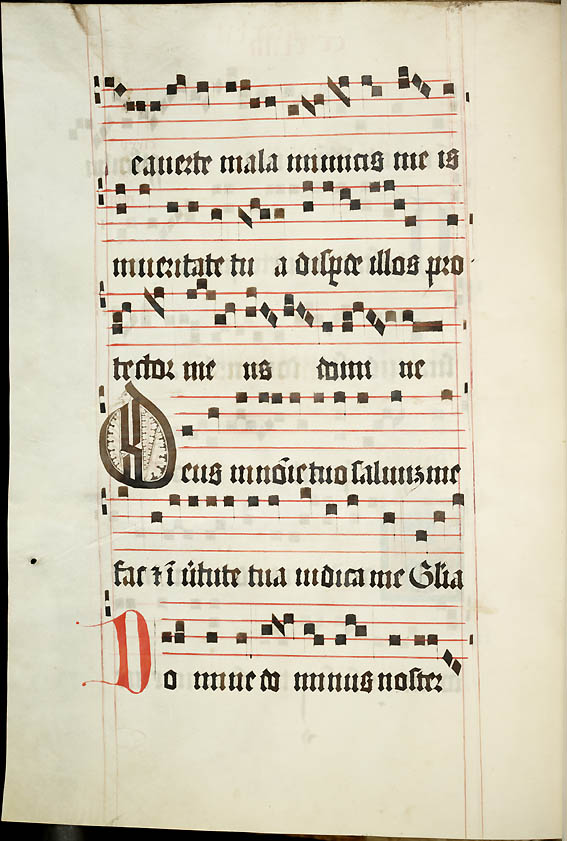 eauerte mala inimicis me is
inueritate tu a disꝑde illos pro
tector me us domi ne
Deus innoīe tuo saluuz me
fac ⁊ ī ūtute tua iudica me Glia
Do mine do minus noster